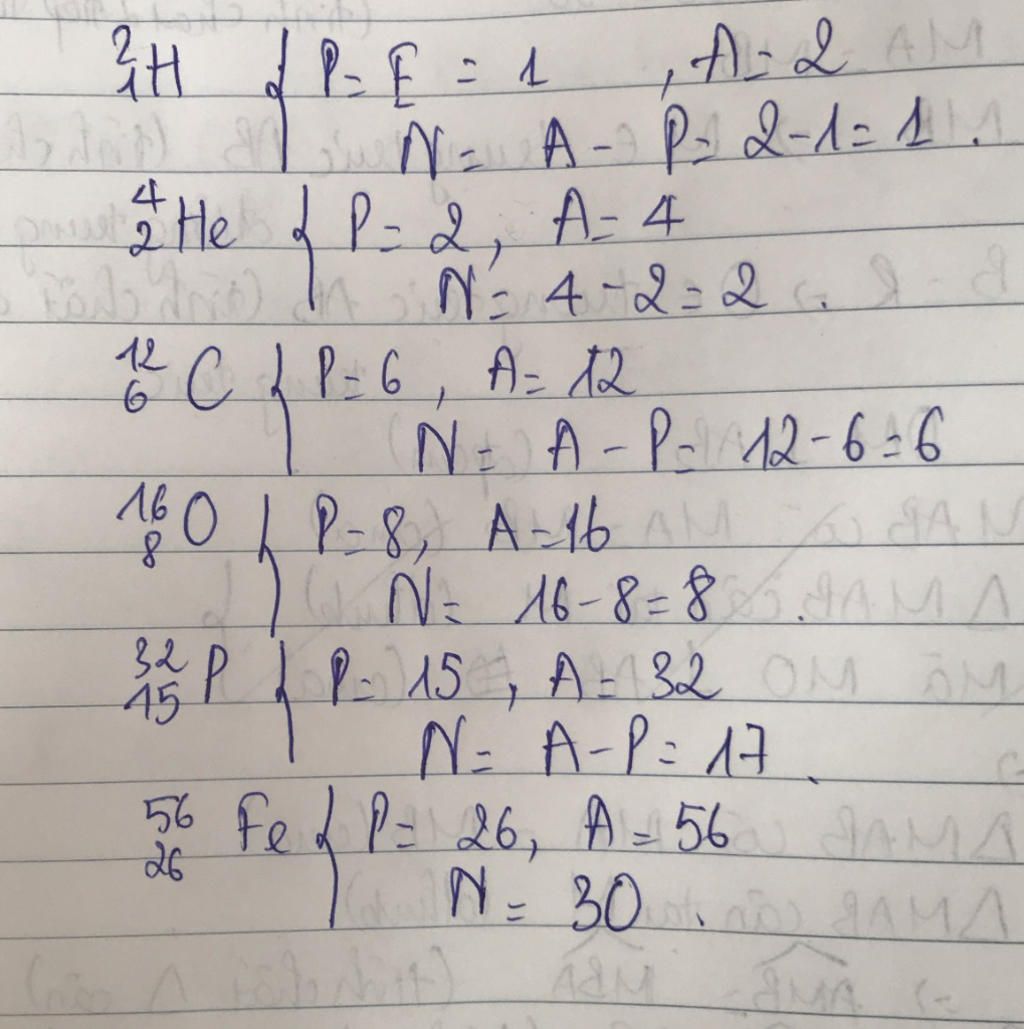 ²₁H { P = E = 1 , A = 2
N = A - P = 2 - 1 = 1 .
⁴₂He { P = 2 , A = 4
N = 4 - 2 = 2 .
¹²₆C { P = 6 , A = 12
N = A - P = 12 - 6 = 6
¹⁶₈O { P = 8, A = 16
N = 16 - 8 = 8 .
³²₁₅P { P = 15 , A = 32
N = A - P = 17 .
⁵⁶₂₆Fe { P = 26, A = 56
N = 30 .